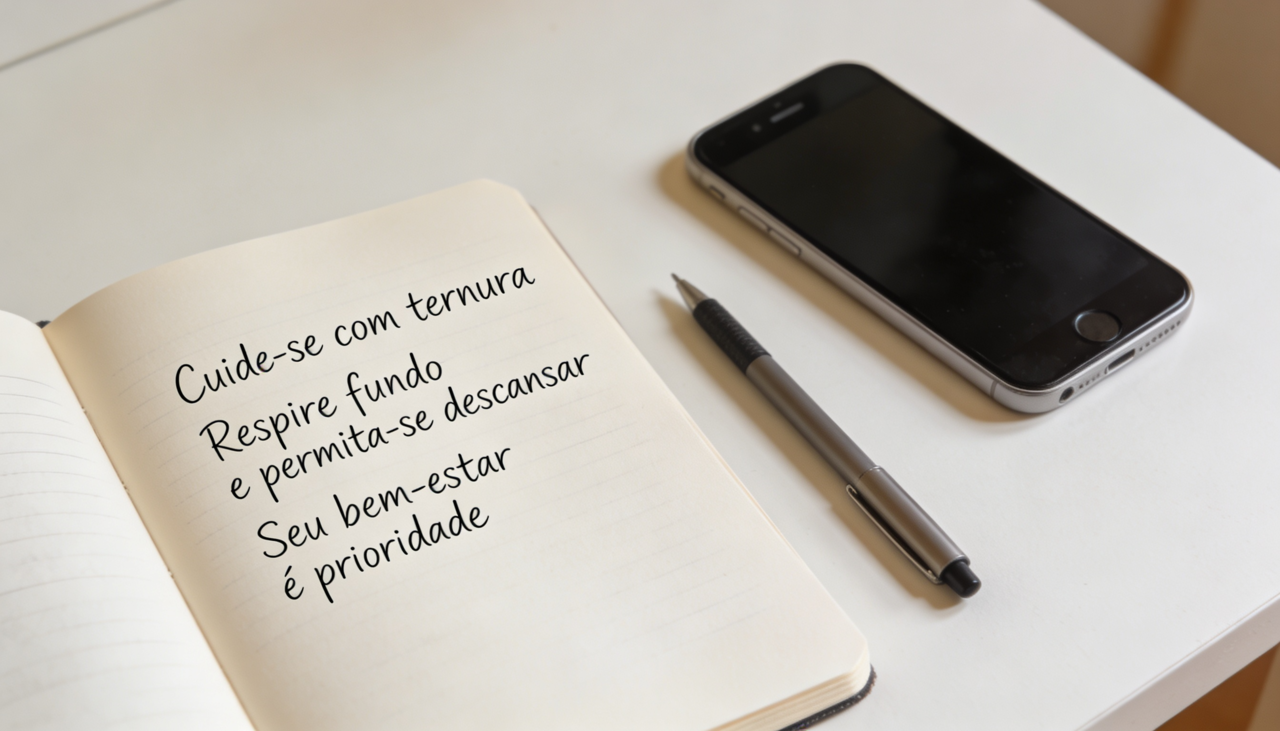 Cuide-se com ternura
Respire fundo
e permita-se descansar
Seu bem-estar
é prioridade